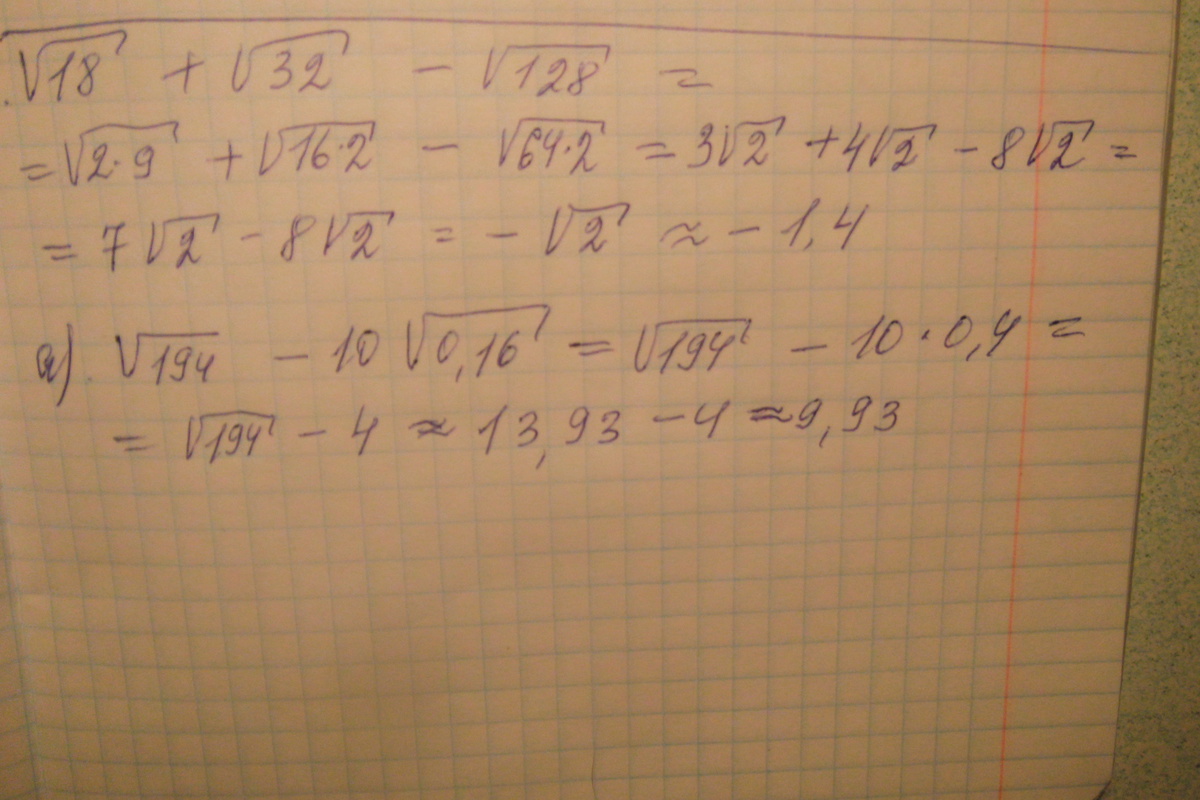 √18 + √32 - √128 =
= √2·9 + √16·2 - √64·2 = 3√2 + 4√2 - 8√2 =
= 7√2 - 8√2 = - √2 ≈ - 1,4
а). √194 - 10√0,16 = √194 - 10·0,4 =
= √194 - 4 ≈ 13,93 - 4 ≈ 9,93